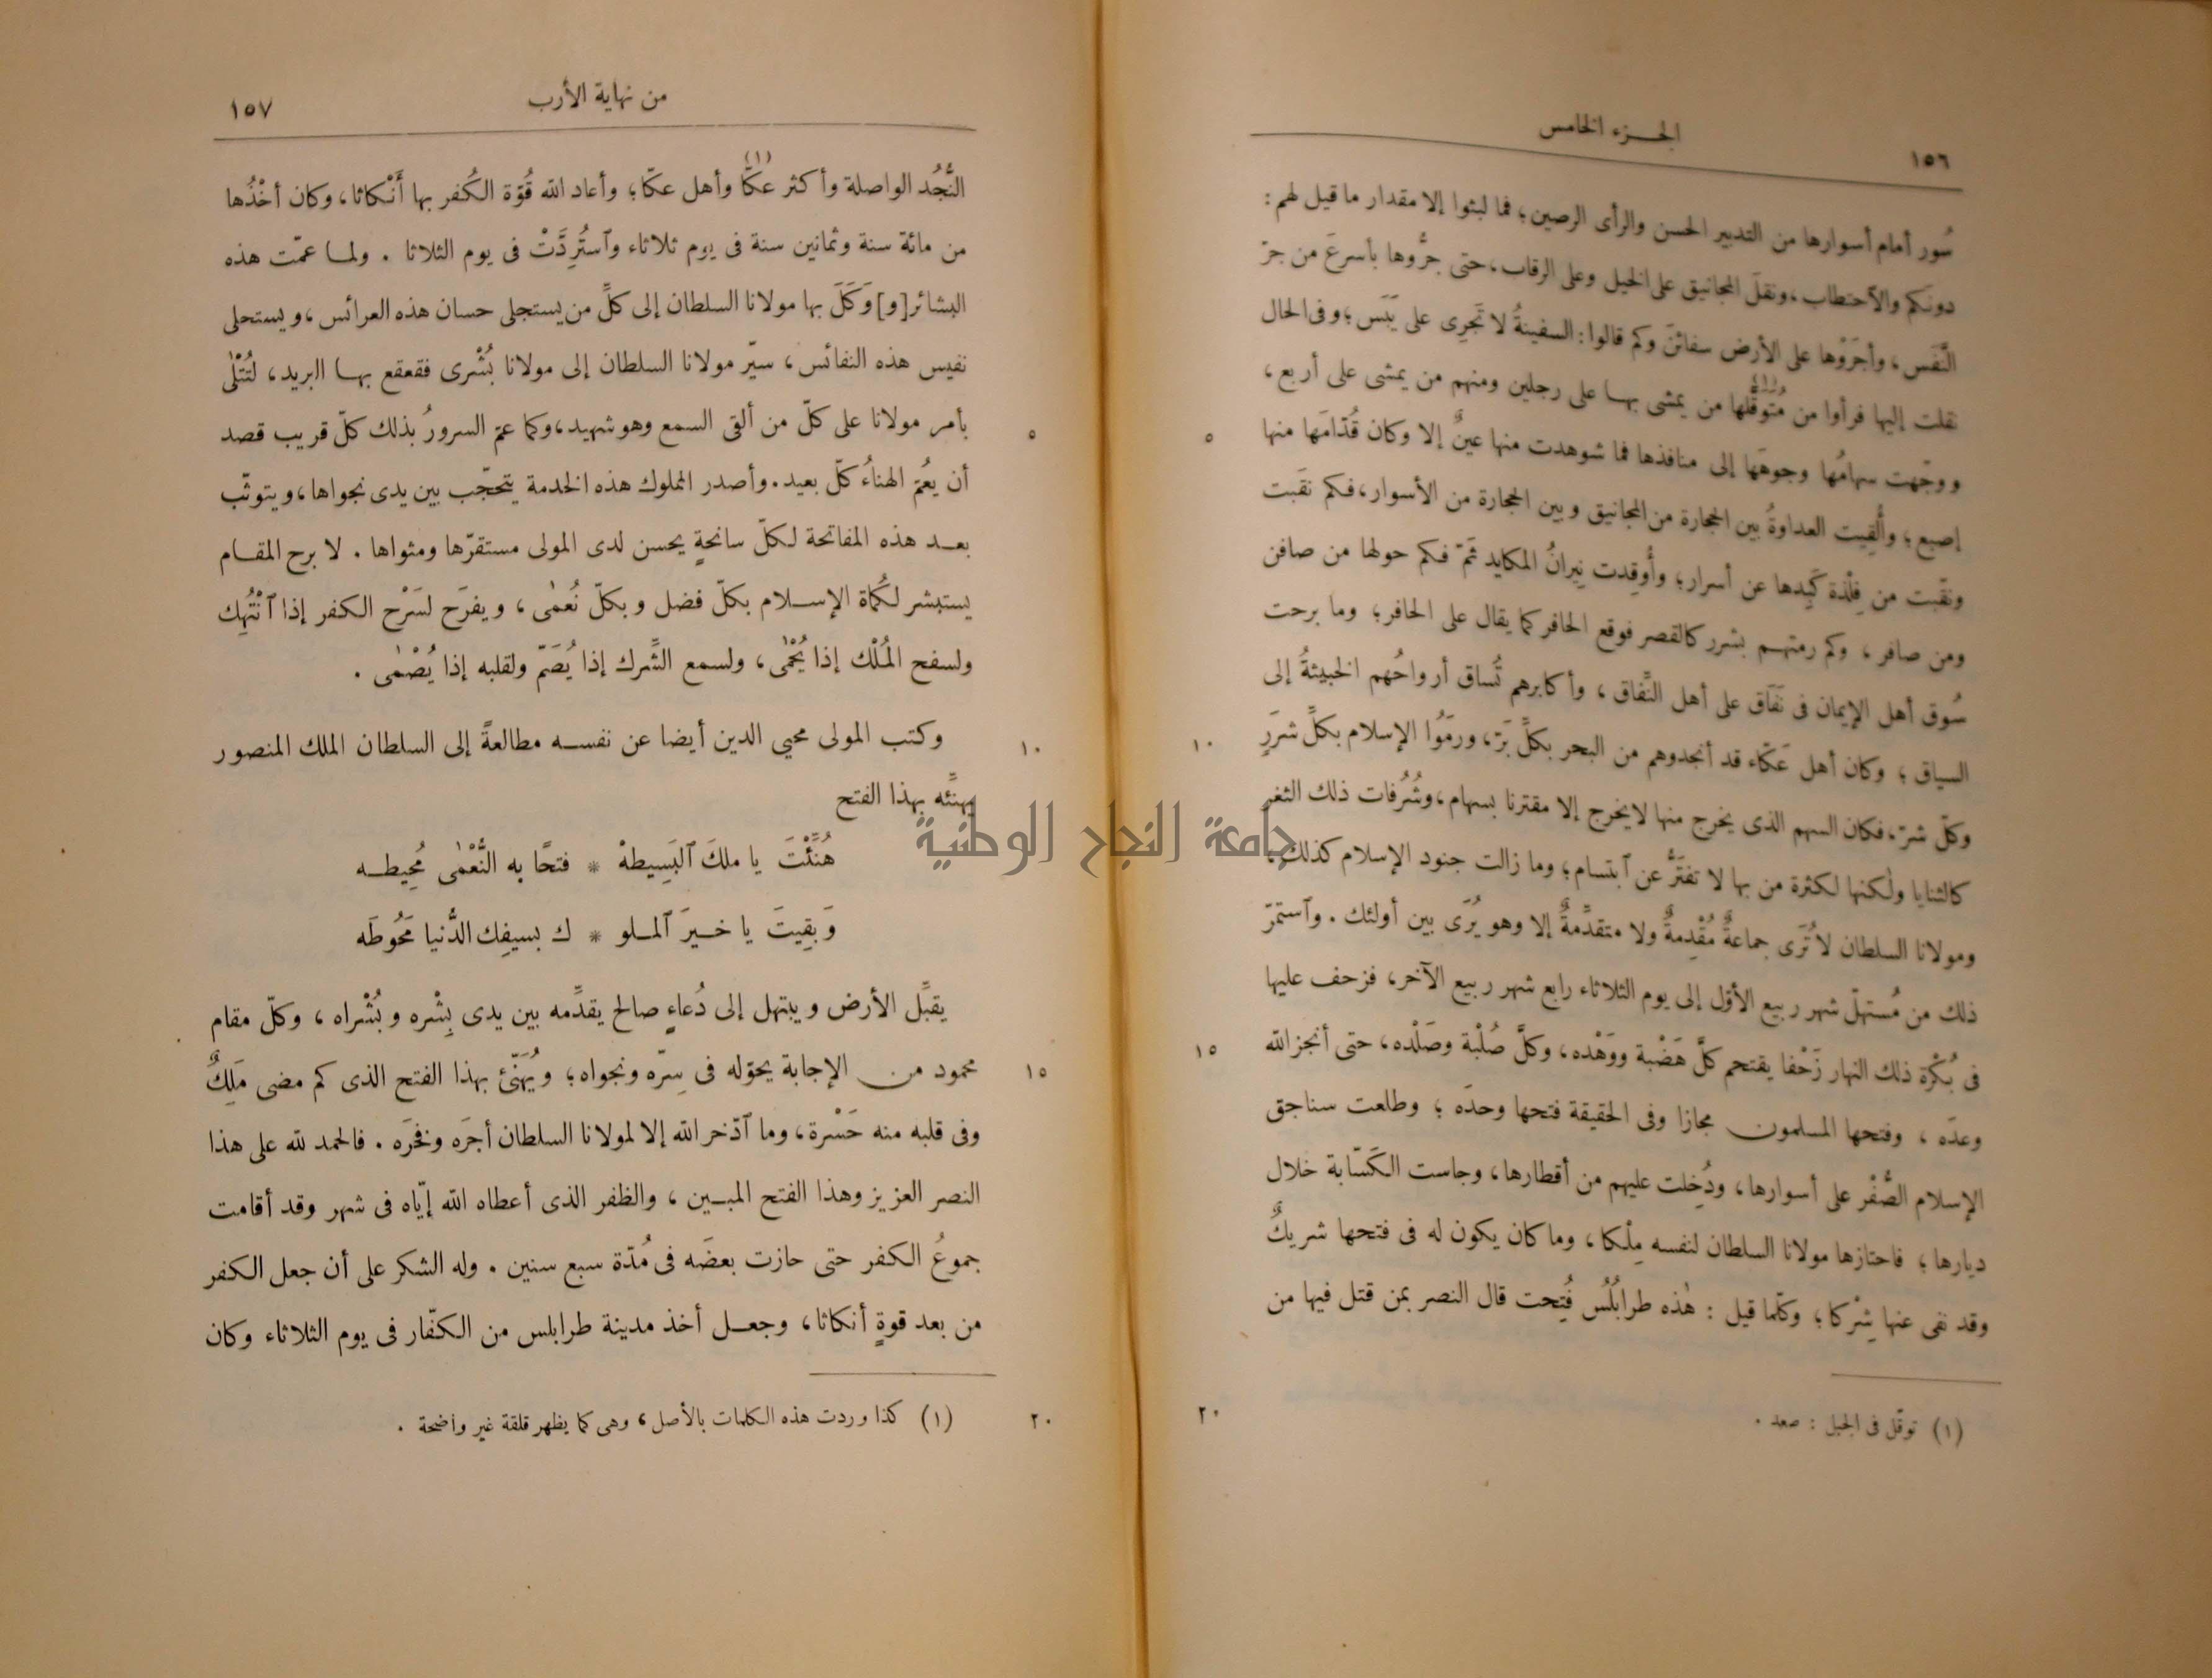 ١٥٦
الجزء الخامس
سُور أمام أسوارها من التدبير الحسن والرأى الرصين؛ فما لبثوا إلا مقدار ما قيل لهم:
دونكم والآحتطاب، ونقلَ المجانيق على الخيل وعلى الرقاب، حتى جرُّوها بأسرعَ من جرّ
النَّفَس، وأجرَوْها على الأرض سفائنَ وكم قالوا: السفينةُ لا تَجرِى على يَبَس؛ وفى الحال
نقلت إليها فرأوا من مُتَوقَّلها (١) من يمشى بهـا على رجلين ومنهم من يمشى على أربع،
٥
ووجّهت سهامُها وجوهَها إلى منافذها فما شوهدت منها عينٌ إلا وكان قُدّامَها منها
إصبع؛ وأُلقِيت العداوةُ بين الحجارة من المجانيق وبين الحجارة من الأسوار، فكم نقَبت
ونقّبت من فِلْذة كَبِدها عن أسرار؛ وأُوقِدت نِيرانُ المكايد ثَمّ فكم حولها من صافن
ومن صافر، وكم رمتهـم بشرر كالقصر فوقع الحافر كما يقال على الحافر؛ وما برحت
سُوق أهل الإيمان فى نَفَاق على أهل النِّفاق، وأكابرهم تُساق أرواحُهم الخبيثةُ إلى
١٠
السياق؛ وكان أهل عَكّاء قد أنجدوهم من البحر بكلِّ بَرّ، ورمَوُا الإسلام بكلِّ شرَرٍ
وكلّ شرّ، فكان السهم الذى يخرج منها لا يخرج إلا مقترنا بسهام، وشُرُفات ذلك الثغر
كالثنايا ولٰكنها لكثرة من بها لا تفتَرُّ عن آبتسام؛ وما زالت جنود الإسلام كذلك،
ومولانا السلطان لا تُرَى جماعةٌ مُقْدِمةٌ ولا متقدِّمةٌ إلا وهو يُرَى بين أولئك. وآستمرّ
ذلك من مُستهلّ شهر ربيع الأوّل إلى يوم الثلاثاء رابع شهر ربيع الآخر، فزحف عليها
١٥
فى بُكْرة ذلك النهار زَحْفا يقتحم كلَّ هَضْبة ووَهْده، وكلَّ صُلْبة وصَلْده، حتى أنجز الله
وعدَه، وفتحها المسلمون مجازا وفى الحقيقة فتحها وحدَه؛ وطلعت سناجق
الإسلام الصُّفْر على أسوارها، ودُخِلت عليهم من أقطارها، وجاست الكَسّابة خلال
ديارها؛ فاحتازها مولانا السلطان لنفسه مِلْكا، وما كان يكون له فى فتحها شريكٌ
وقد نفى عنها شِرْكا؛ وكلّما قيل: هٰذه طرابُلُسُ فُتِحت قال النصر بمن قتل فيها من
٢٠
(١) توقّل فى الجبل: صعد.
من نهاية الأرب
١٥٧
النُّجُد الواصلة وأكثر عكّا (١) وأهل عكّا؛ وأعاد الله قُوّة الكُفر بها أَنْكاثا، وكان أخْذُها
من مائة سنة وثمانين سنة فى يوم ثلاثاء وآستُرِدَّتْ فى يوم الثلاثا. ولمـا عمّت هذه
البشائر [و] وَكَلَ بها مولانا السلطان إلى كلِّ من يستجلى حسان هذه العرائس، ويستحلى
نفيس هذه النفائس، سيّر مولانا السلطان إلى مولانا بُشْرى فقعقع بهـا البريد، لتُتْلٰى
٥
بأمر مولانا على كلّ من ألقى السمع وهو شهيد، وكما عمّ السرورُ بذلك كلّ قريب قصد
أن يعُمّ الهناءُ كلّ بعيد. وأصدر المملوك هذه الخدمة يتحجّب بين يدى نجواها، ويتوثّب
بعـد هذه المفاتحة لكلّ سانحةٍ يحسن لدى المولى مستقرّها ومثواها. لا برح المقـام
يستبشر لكُماة الإسـلام بكلّ فضل وبكلّ نُعمٰى، ويفرَح لسَرْح الكفر إذا آنْتُهِك
ولسفح المُلْك إذا يُحْمٰى، ولسمع الشِّرك إذا يُصَمّ ولقلبه إذا يُصْمٰى.
١٠
وكتب المولى محيي الدين أيضا عن نفسـه مطالعةً إلى السلطان الملك المنصور
يهنِّئه بهذا الفتح
هُنِّئْتَ يا ملكَ آلبَسِيطهْ * فتحًا به النُّعْمٰى مُحِيطـه
وَبقِيتَ يا خـيرَ آلمـلو * ك بسيفِك الدُّنيا مَحُوطَه
يقبِّل الأرض ويبتهل إلى دُعاءٍ صالح يقدِّمه بين يدى بِشْره وبُشْراه، وكلّ مقام
١٥
محمود من الإجابة يحوّله فى سِرّه ونجواه؛ ويُهَنّئ بهذا الفتح الذى كم مضى مَلِكٌ
وفى قلبه منه حَسْرة، وما آدّخر الله إلا لمولانا السلطان أجرَه وفخرَه. فالحمد لله على هذا
النصر العزيز وهذا الفتح المبـين، والظفر الذى أعطاه الله إيّاه فى شهر وقد أقامت
جموعُ الكفر حتى حازت بعضَه فى مُدّة سبع سنين. وله الشكر على أن جعل الكفر
من بعد قوةٍ أنكاثا، وجعـل أخذ مدينة طرابلس من الكفّار فى يوم الثلاثاء وكان
٢٠
(١) كذا وردت هذه الكلمات بالأصل، وهى كما يظهر قلقة غير واضحة.
جامعة النجاح الوطنية